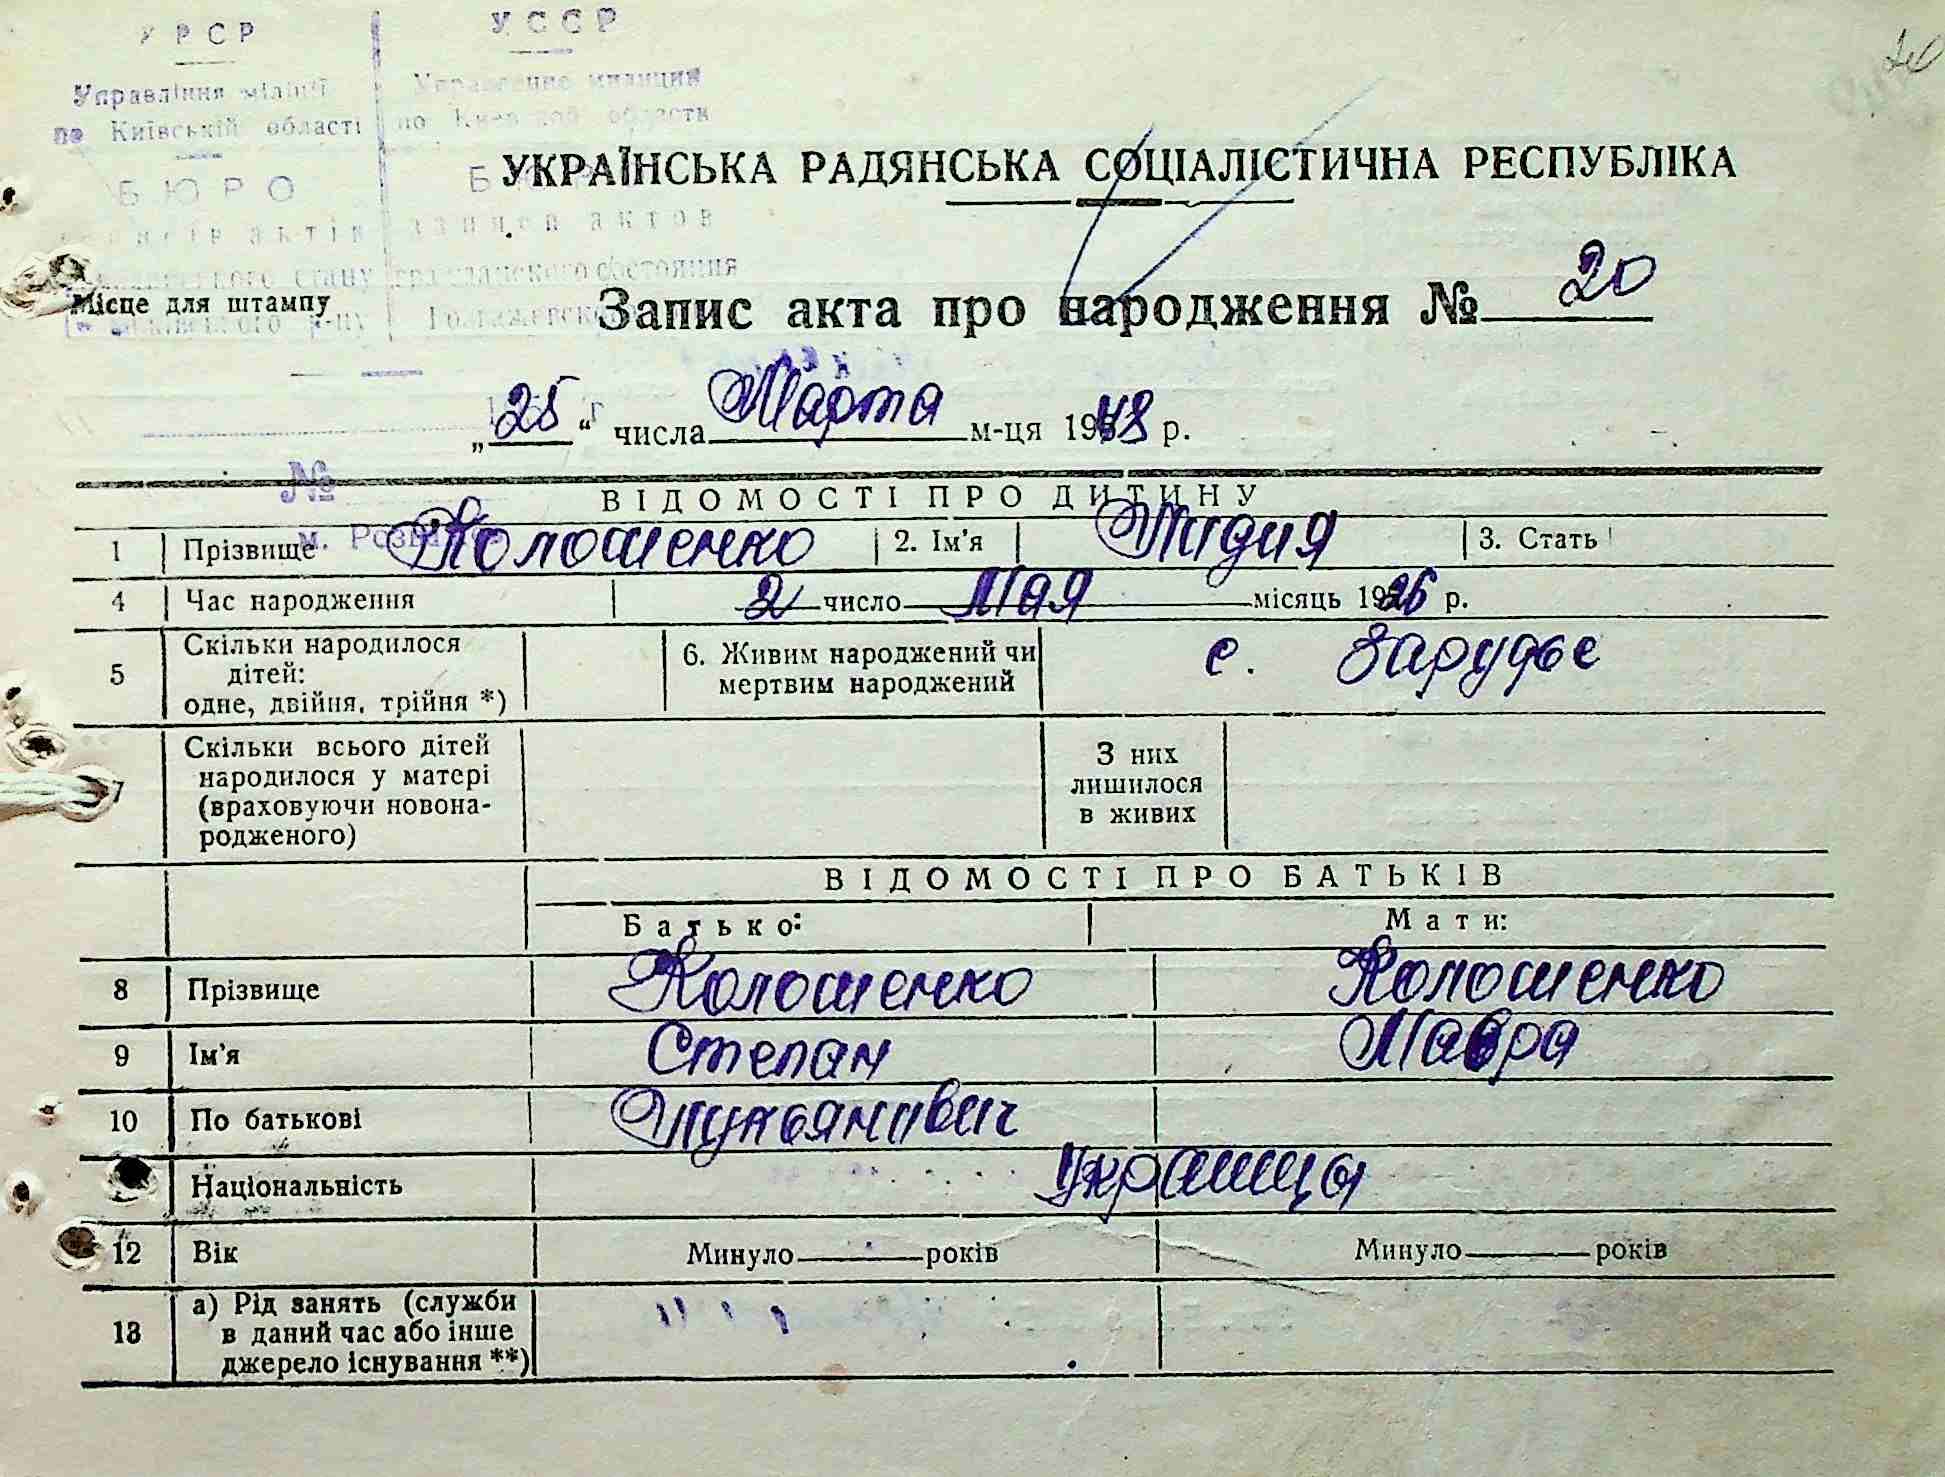 УРСР
УССР
Управління міліції
Управление милиции
по Київській області
по области
БЮРО
УКРАЇНСЬКА РАДЯНСЬКА СОЦІАЛІСТИЧНА РЕСПУБЛІКА
актів
актов
стану гражданского состояния
Місце для штампу
Запис акта про народження № 20
„25“ числа Марта м-ця 1948 р.
№
ВІДОМОСТІ ПРО ДИТИНУ
м.
1 Прізвище Колошенко 2. Ім'я Лидия 3. Стать
4 Час народження 2 число Мая місяць 1926 р.
5 Скільки народилося дітей: одне, двійня, трійня *) 6. Живим народжений чи мертвим народжений с. Зарудье
7 Скільки всього дітей народилося у матері (враховуючи новонародженого) З них лишилося в живих
ВІДОМОСТІ ПРО БАТЬКІВ
Батько: Мати:
8 Прізвище Колошенко Колошенко
9 Ім'я Степан Мавра
10 По батькові Лукьянович
Національність Украинцы
12 Вік Минуло років Минуло років
13 а) Рід занять (служби в даний час або інше джерело існування **)